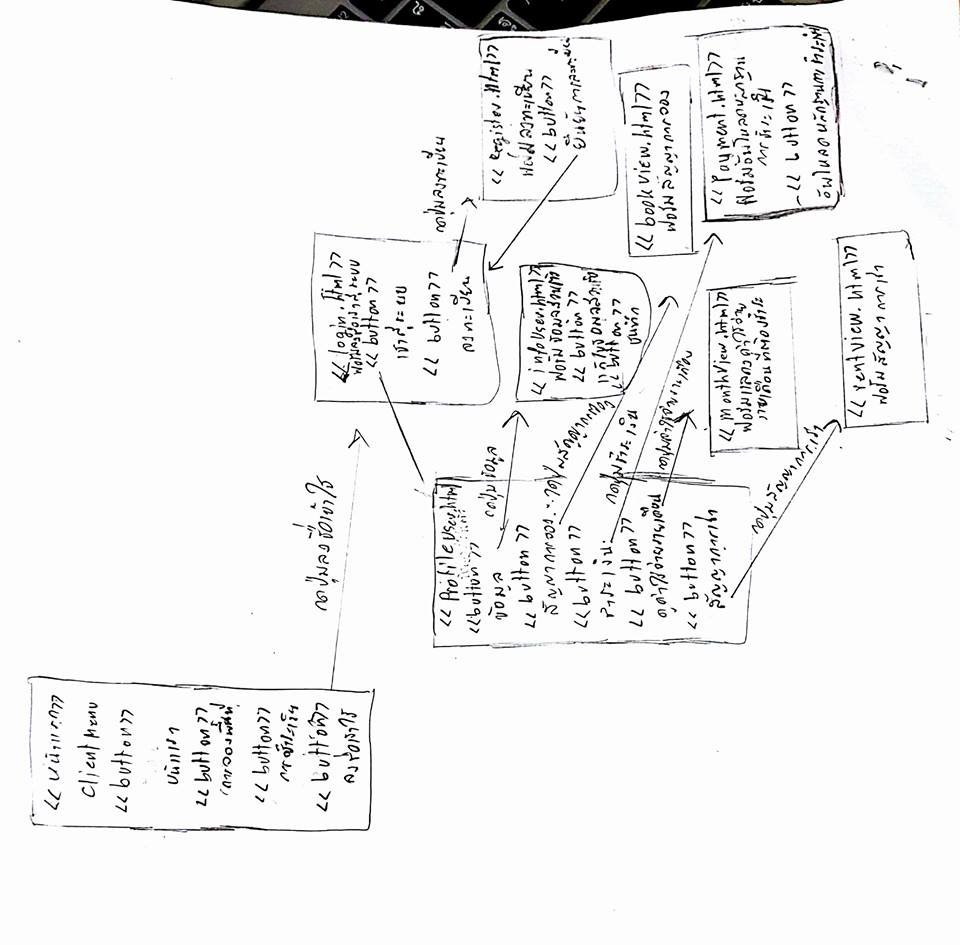 << หน้าแรก >>
Client Menu
<< button >>
หน้าแรก
<< button >>
การจองพื้นที่
<< button >>
การชำระเงิน
<< button >>
ลงชื่อเข้าใช้
กดปุ่มลงชื่อเข้าใช้
<< login.html >>
ฟอร์มลงชื่อเข้าสู่ระบบ
<< button >>
เข้าสู่ระบบ
<< button >>
ลงทะเบียน
กดปุ่มลงทะเบียน
<< Register.html >>
ฟอร์มลงทะเบียน
<< button >>
ยืนยันการลงทะเบียน
<< Profileuser.html
<< button >>
ข้อมูล
<< button >>
สัญญาการจอง
<< button >>
ชำระเงิน
<< button >>
ดูค่าใช้จ่ายรายเดือน
<< button >>
สัญญาการเช่า
กดปุ่มข้อมูล
<< infouser.html >>
ฟอร์มข้อมูลส่วนตัว
<< button >>
แก้ไขข้อมูลส่วนตัว
<< button >>
กดปุ่มสัญญาการจอง
<< bookview.html >>
ฟอร์มสัญญาการจอง
กดปุ่มชำระเงิน
<< Payment.html >>
ฟอร์มอัพโหลดหลักฐาน
การชำระเงิน
<< button >>
อัพโหลดหลักฐานการชำระเงิน
กดปุ่มค่าใช้จ่ายรายเดือน
<< monthview.html >>
ฟอร์มแสดงค่าใช้จ่าย
รายเดือนที่ต้องชำระ
กดปุ่มสัญญาการเช่า
<< rentview.html >>
ฟอร์มสัญญาการเช่า